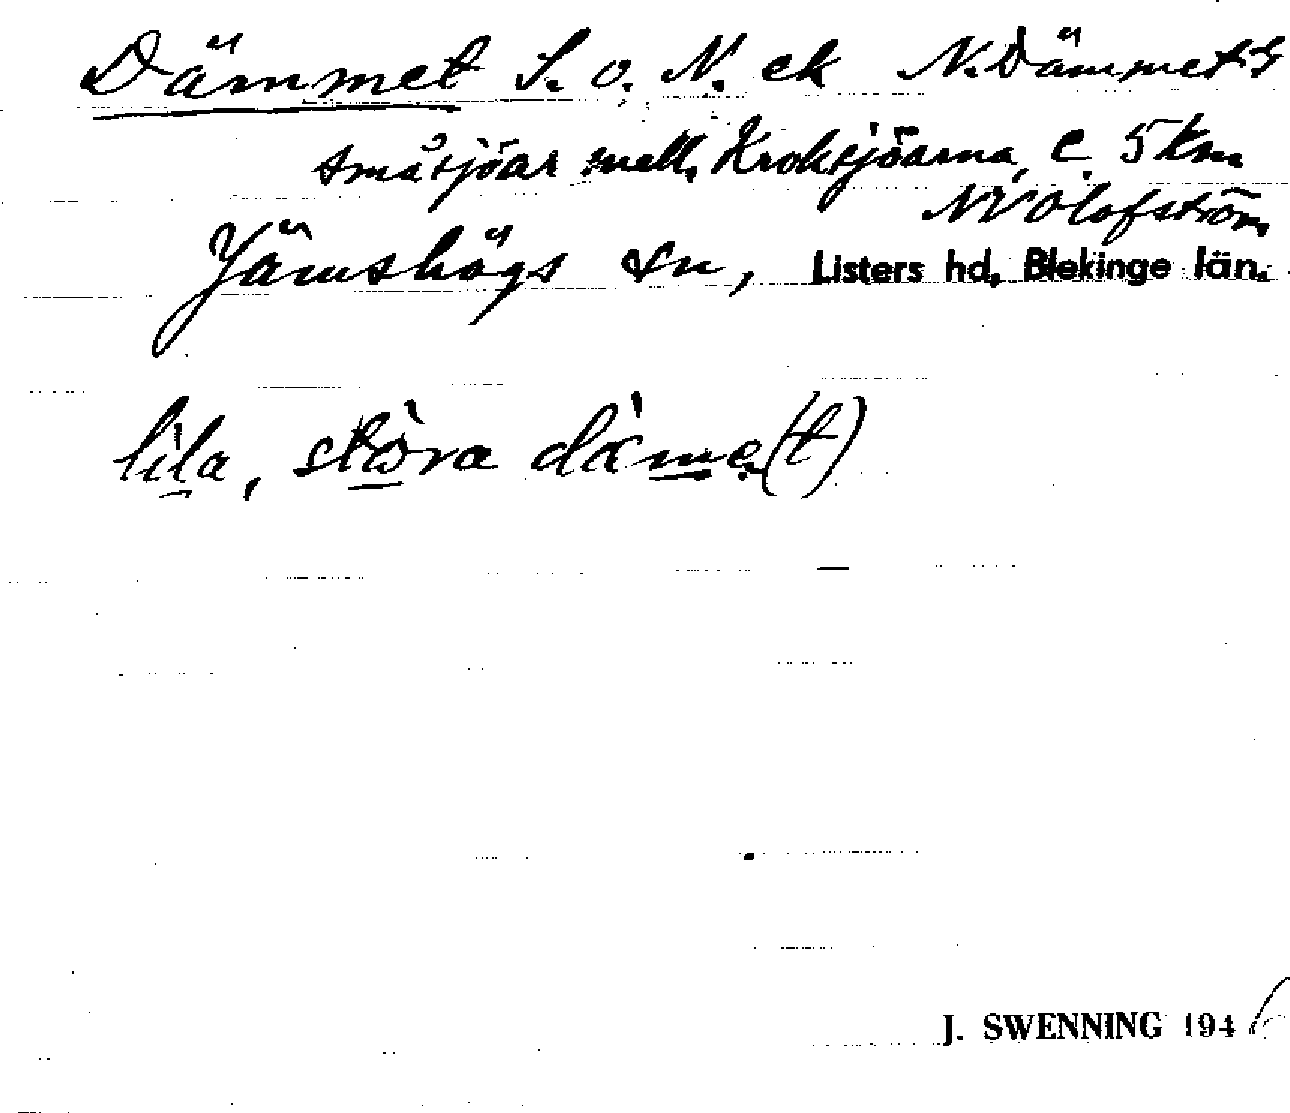 Dämmet S. o. N. ek N. Dämmet
småsjöar mell. Kroksjöarna, c. 5 km
NV Olofström
Jämshögs sn, Listers hd, Blekinge län.
lila, störa däme(t)
J. SWENNING 1946